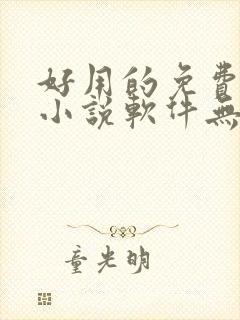 好用的免費
小說軟件無
童光明